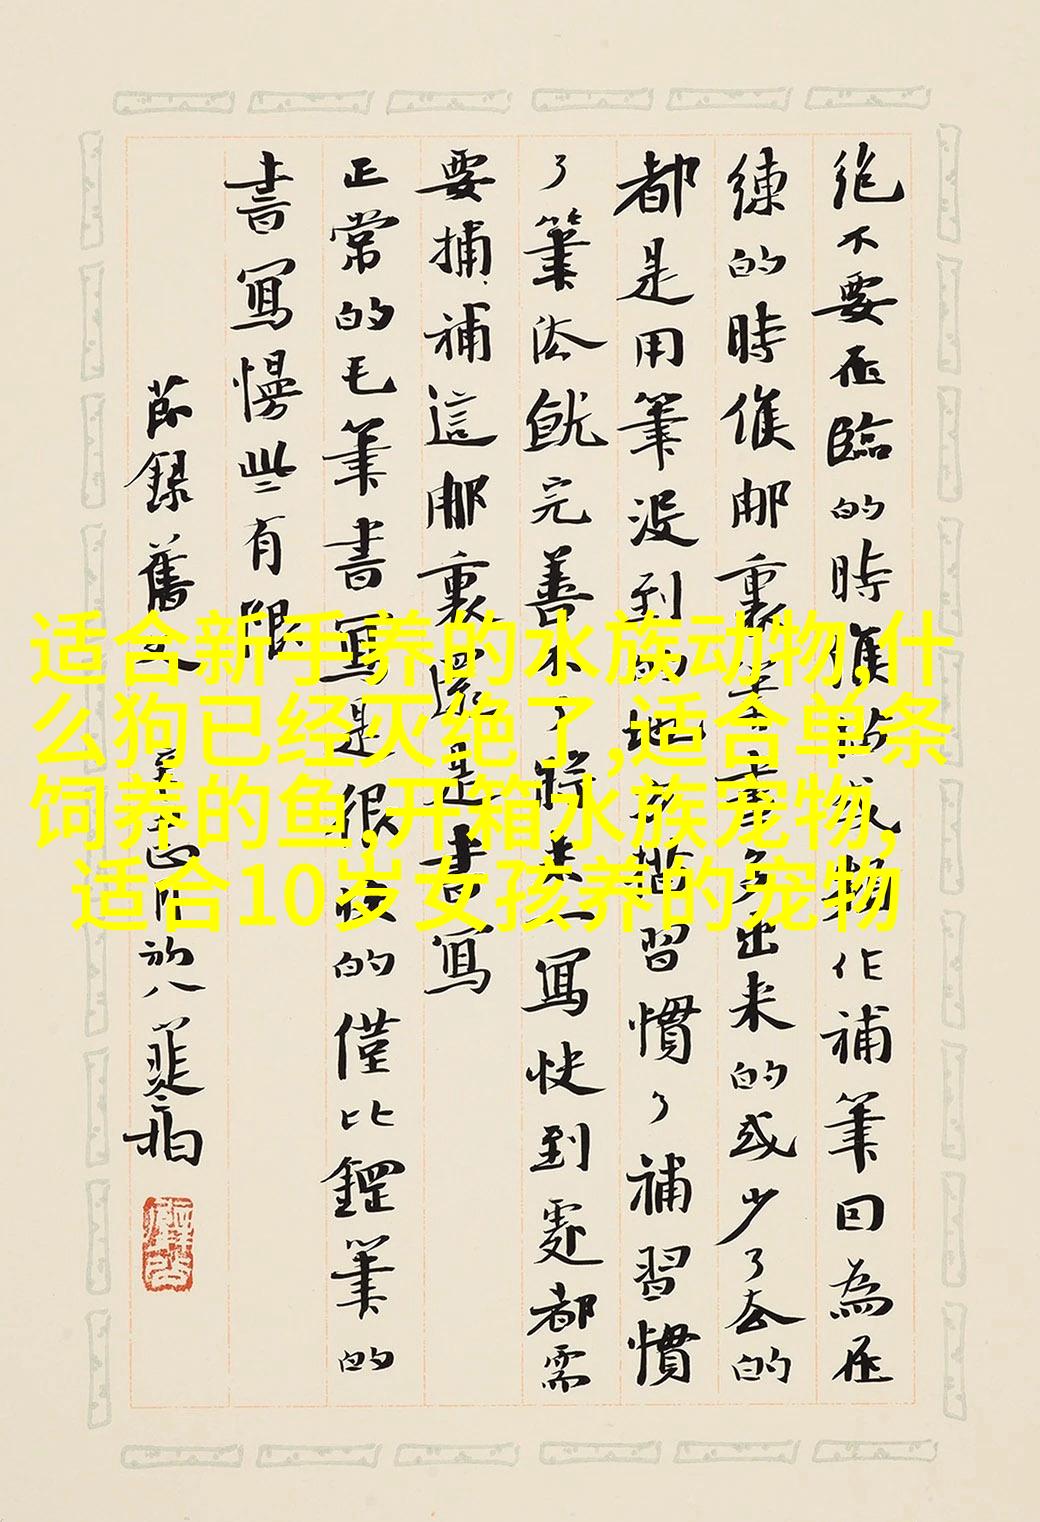 絕不要在臨的時候作補筆因為在
練的時候那裏多出來的或少了去的
都是用筆沒到的地方習慣了補習慣
了筆法就完善不了將來一寫快到處都需
要捕補這那裏還是書寫
正常的毛筆書寫是很快的僅比鋼筆的
書寫慢些有限
節錄舊文
适合新手养的水族动物,什
么狗已经灭绝了,适合单条
饲养的鱼,开箱水族宠物,
适合10岁女孩养的宠物